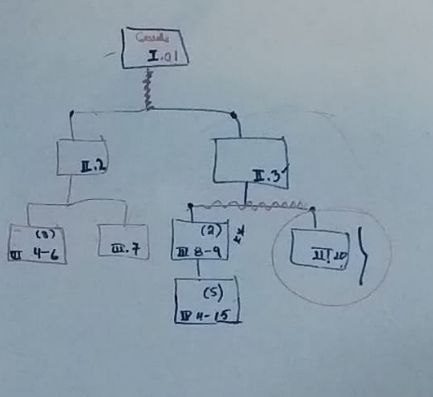 I.01
II.2
II.3
(3)
III 4-6
III.7
(2)
III 8-9
III.10
(5)
IV 4-15